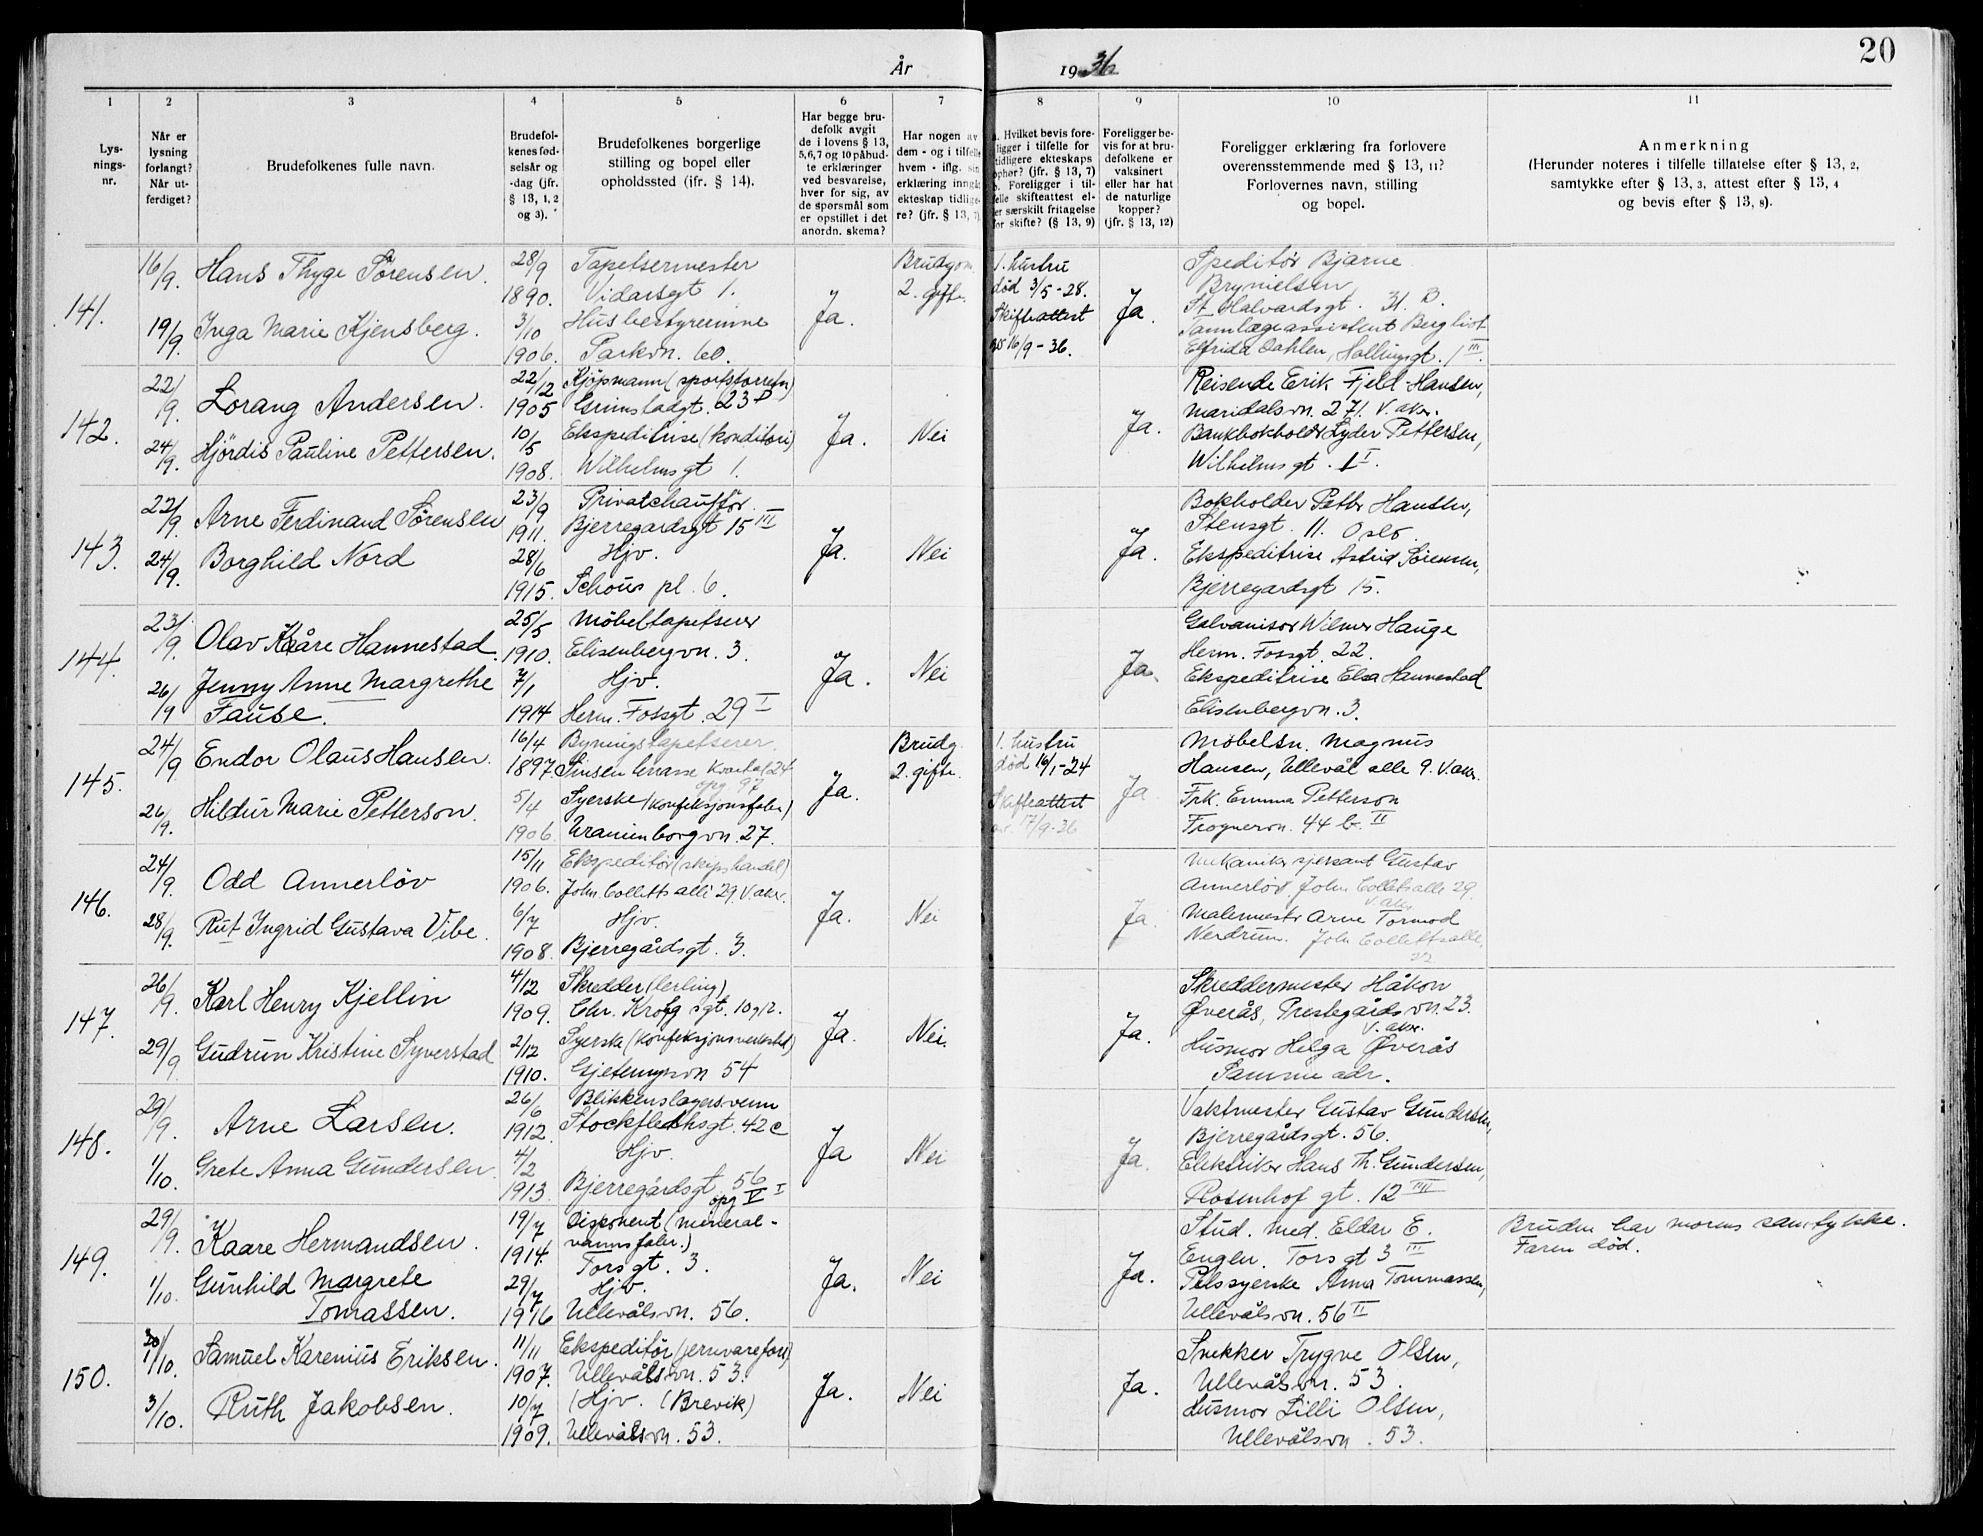 År 1936
20
1 2 3 4 5 6 7 8 9 10 11
Lys-
nings-
nr.
Når er
lysning
forlangt?
Når ut-
ferdiget?
Brudefolkenes fulle navn.
Brudefol-
kenes fød-
selsår og
-dag (jfr.
§ 13, 1, 2
og 3).
Brudefolkenes borgerlige
stilling og bopel eller
opholdssted (ifr. § 14).
Har begge bru-
defolk avgit
de i lovens § 13,
5, 6, 7 og 10 påbud-
te erklæringer
ved besvarelse,
hver for sig, av
de spørsmål som
er opstillet i det
anordn. skema?
Har nogen av
dem - og i tilfelle
hvem - iflg. sin
erklæring inngått
ekteskap tidlige-
re? (jfr. § 13, 7)
a. Hvilket bevis fore-
ligger i tilfelle for
tidligere ekteskaps
ophør? (jfr. § 13, 7)
b. Foreligger i til-
felle skifteattest el-
er særskilt fritagelse
for skifte? (§ 13, 9)
Foreligger be-
vis for at bru-
defolkene er
vaksinert
eller har hat
de naturlige
kopper?
(jfr. § 13, 12)
Foreligger erklæring fra forlovere
overensstemmende med § 13, 11?
Forlovernes navn, stilling
og bopel.
Anmerkning
(Herunder noteres i tilfelle tillatelse efter § 13, 2,
samtykke efter § 13, 3, attest efter § 13, 4
og bevis efter § 13, 8).
141.
16/9. Hans Thyge Sørensen.
28/9 1890.
Tapetsermester
Vidarsgt 1.
19/9. Inga Marie Kjensberg.
3/10 1906.
Husbestyrerinne
Parkvn. 60.
Ja.
Brudgom
2. gifte.
1. hustru
død 3/5-28.
Skifteattest
av 16/9-36.
Ja.
Speditør Bjarne
Brynielsen
St. Halvardsgt. 31. B.
Tannlægeassistent Bergliot
Elfrida Dahlen, Hallingsgt. 1 III.
142.
22/9. Lorang Andersen.
22/12 1905
Kjøpmann (sportsforretn)
Grimstadgt. 23 D
24/9. Hjördis Pauline Pettersen.
10/5 1908.
Ekspeditrise (konditori)
Wilhelmsgt 1.
Ja.
Nei
Ja.
Reisende Erik Fjeld Hansen,
Maridalsvn. 271. V. aker.
Bankbokholder Lyder Pettersen,
Wilhelmsgt. 1 I.
143.
22/9. Arne Ferdinand Sørensen
23/9 1911.
Privatchauffør.
Bjerregardsgt 15 III
24/9. Borghild Nord
28/6 1915.
Hjv.
Schous pl. 6.
Ja.
Nei
Ja.
Bokholder Petter Hansen,
Stensgt. 11. Oslo.
Ekspeditrise Astrid Sørensen,
Bjerregardsgt 15.
144.
23/9. Olav Kåre Hannestad.
25/5 1910.
Møbeltapetserer
Elisenbergvn. 3.
26/9 Jenny Anne Margrethe
Fause.
7/1 1914
Hjv.
Herm. Fossgt. 29 I
Ja.
Nei
Ja.
Galvanisør Wilmer Hauge
Herm. Fossgt. 22.
Ekspeditrise Elsa Hannestad
Elisenbergvn. 3.
145.
24/9 Endor Olaus Hansen.
16/4 1897.
Bygningstapetserer.
Sinsen terrasse Kvartal 24
opg 97
26/9. Hildur Marie Petterson.
5/4 1906.
Syerske (konfeksjonsfabr.)
Uranienborgvn. 27.
Ja.
Brudg.
2. gifte.
1. hustru
død 16/1-24
Skifteattest
av. 17/9-36
Ja
Møbelsn. Magnus
Hansen, Ullevål alle 9. V. aker.
Frk. Emma Petterson
Frognervn. 44 b. II
146.
24/9. Odd Annerløv
15/11 1906.
Ekspeditør (skipshandel)
John Colletts alle 29. V. aker.
28/9. Rut Ingrid Gustava Vibe.
6/7 1908.
Hjv.
Bjerregårdsgt. 3.
Ja.
Nei
Ja
Mekaniker sjersant Gustav
Annerløv John Colletts alle 29.
V. aker
Malermester Arne Tormod
Nerdrum. John Colletts alle,
22
147.
26/9. Karl Henry Kjellin
4/12 1909.
Skredder (lerling)
Chr. Krohgsgt. 10
29/9 Gudrun Kristine Syverstad
2/12 1910.
Syerska (konfeksjonsverksted)
Gjetemyrsvn 54
Ja.
Nei.
Ja.
Skreddermester Håkon
Øverås, Prestegårdsvn. 23.
V. aker.
Husmor Helga Øverås
Samme adr.
148.
29/9. Arne Larsen.
26/6 1912.
Blikkenslagersvenn
Stockflethsgt. 42 c
1/10. Grete Anna Gundersen.
4/2 1913.
Hjv.
Bjerregårdsgt. 56
opg V I
Ja
Nei
Ja.
Vaktmester Gustav Gundersen,
Bjerregårdsgt. 56.
Elektriker Hans Th. Gundersen,
Rosenhofgt. 12 III
149.
29/9. Kaare Hermandsen.
19/7 1914.
Disponent (mineral-
vannsfabr.)
Torsgt. 3.
1/10. Gunhild Margrete
Tomassen.
29/7 1916
Hjv.
Ullevålsvn. 56.
Ja.
Nei
Ja.
Stud. med. Eldar E.
Engen. Torsgt 3 III
Pelssyerske Anna Tommassen,
Ullevålsvn. 56 II
Bruden har morens samtykke.
Faren død.
150.
1/10. Samuel Karenius Eriksen.
11/11 1907.
Ekspeditør (jernvareforr)
Ullevålsvn. 53.
3/10. Ruth Jakobsen.
10/7 1909.
(Hjv. (Brevik)
Ullevålsvn. 53.
Ja.
Nei
Ja.
Snekker Trygve Olsen,
Ullevålsvn. 53.
Husmor Lilli Olsen,
Ullevålsvn. 53.